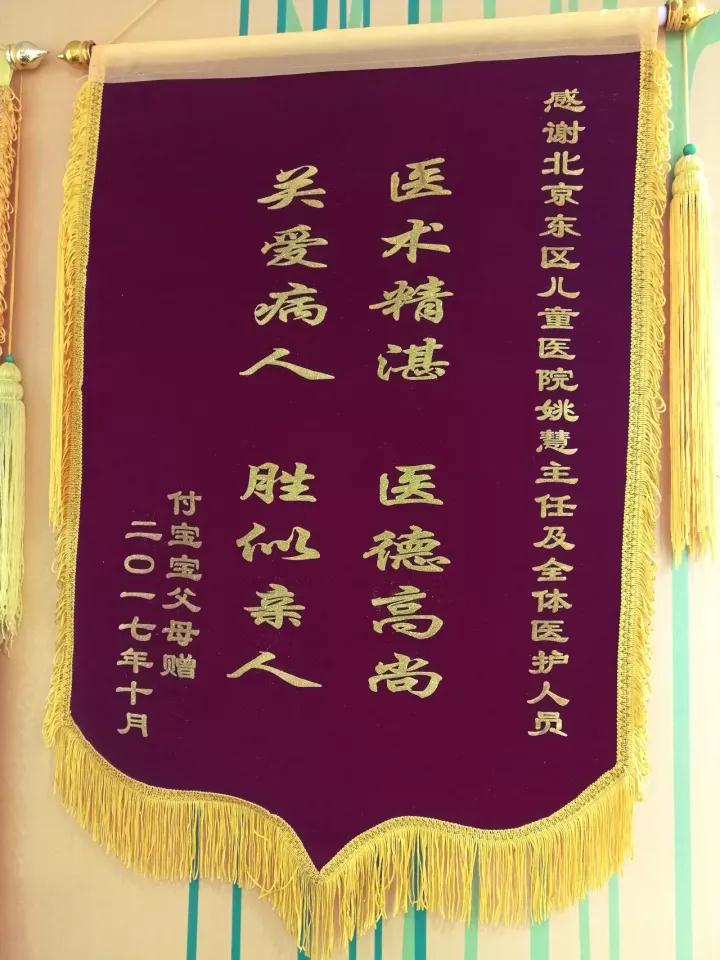 感谢北京东区儿童医院姚慧主任及全体医护人员
医术精湛 医德高尚
关爱病人 胜似亲人
付宝宝父母赠
二〇一七年十月